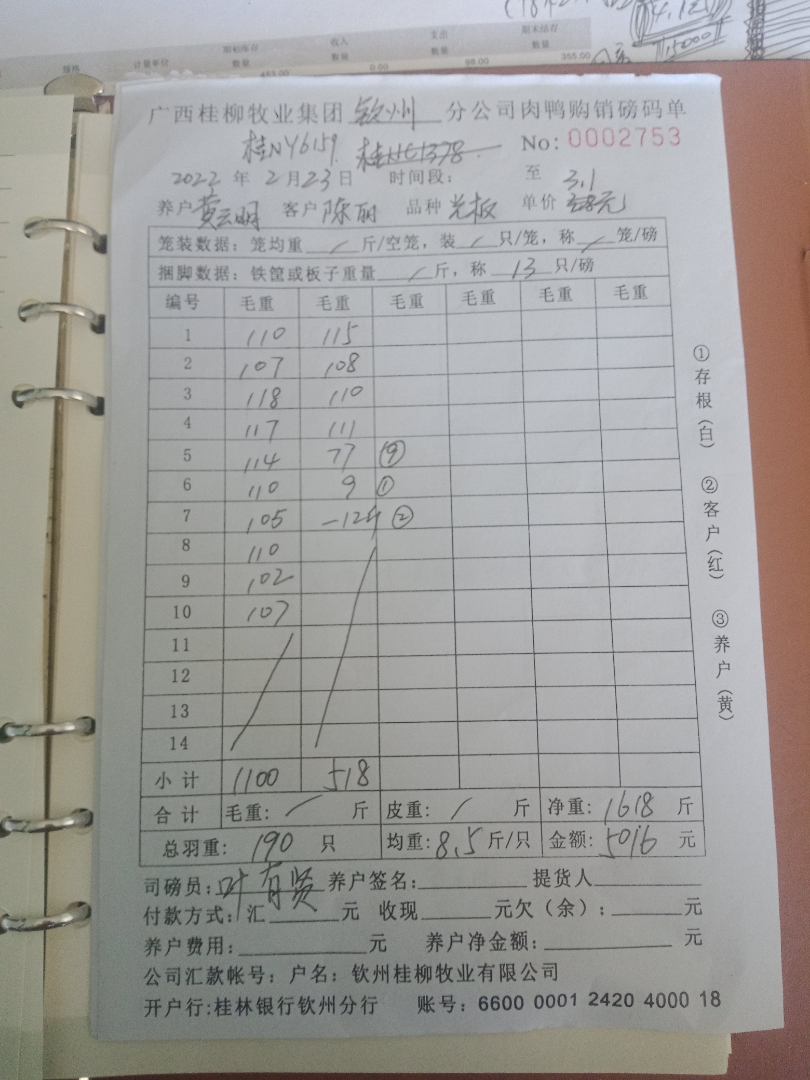 期初库存 收入 支出 期末结存
规格 计量单位 数量 数量 数量 数量
453.00 0.00 98.00 355.00
广西桂柳牧业集团 钦州 分公司肉鸭购销磅码单
桂NY6159 No: 0002753
2022 年 2 月 23 日 时间段： 至 3.1
养户 黄云明 客户 陈丽 品种 单价
笼装数据：笼均重 / 斤/空笼，装 / 只/笼，称 / 笼/磅
捆脚数据：铁筐或板子重量 / 斤，称 13 只/磅
编号 毛重 毛重 毛重 毛重 毛重 毛重
1 110 115
2 107 108
3 118 110
4 117 111
5 114 77 ⑨
6 110 9 ①
7 105 -12斤 ②
8 110
9 102
10 107
11
12
13
14
小计 1100 518
合计 毛重: / 斤 皮重: / 斤 净重: 1618 斤
总羽重: 190 只 均重: 8.5 斤/只 金额: 5016 元
司磅员: 叶有贤 养户签名: 提货人
付款方式: 汇 元 收现 元欠（余）: 元
养户费用: 元 养户净金额: 元
公司汇款帐号：户名：钦州桂柳牧业有限公司
开户行:桂林银行钦州分行 账号：6600 0001 2420 4000 18
①存根（白） ②客户（红） ③养户（黄）